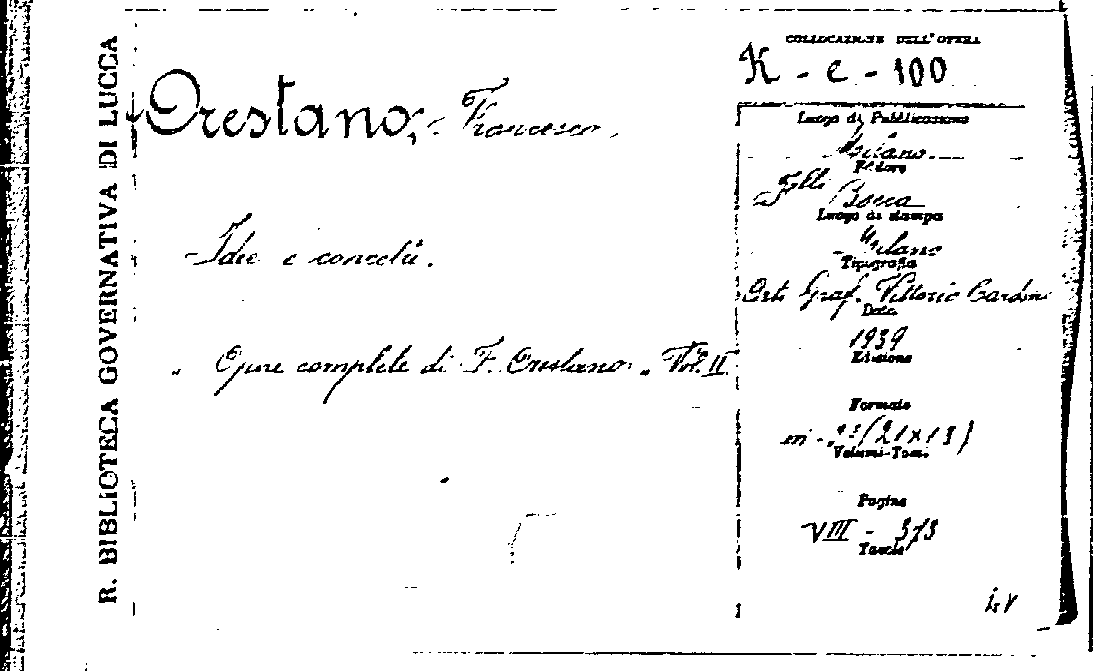 R. BIBLIOTECA GOVERNATIVA DI LUCCA
Orestano, Francesco.
Idee e concetti.
" Opere complete di F. Orestano " Vol. II
COLLOCAZIONE DELL'OPERA
K - c - 100
Luogo di Pubblicazione
Milano
Editore
F.lli Bocca
Luogo di stampa
Milano
Tipografia
Arti Graf. Vittorio Cardin
Data
1939
Edizione
Formato
in - (21x13)
Volumi-Tom.
Pagine
VIII - 373
Tavole